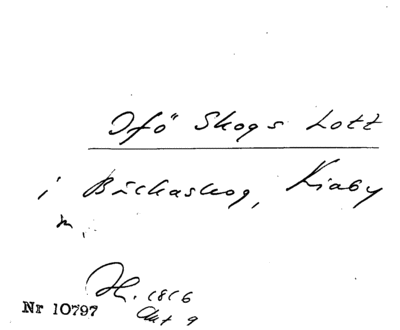 Ifö Skogs Lott
i Bäckaskog, Kiaby
m.
H. 1816
Nr 10797